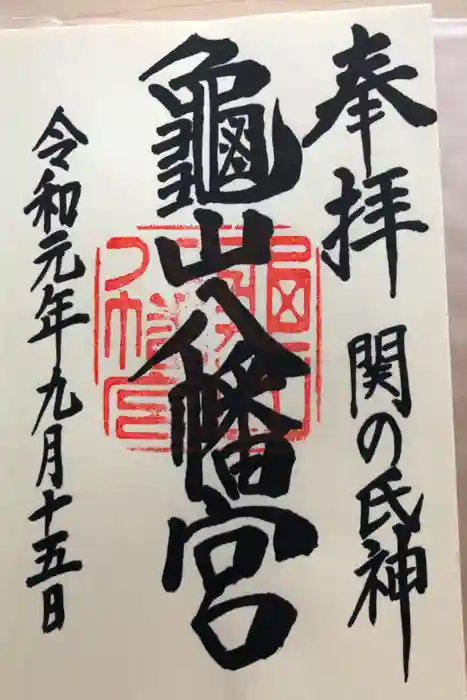 奉拝 関の氏神
龜山八幡宮
令和元年九月十五日